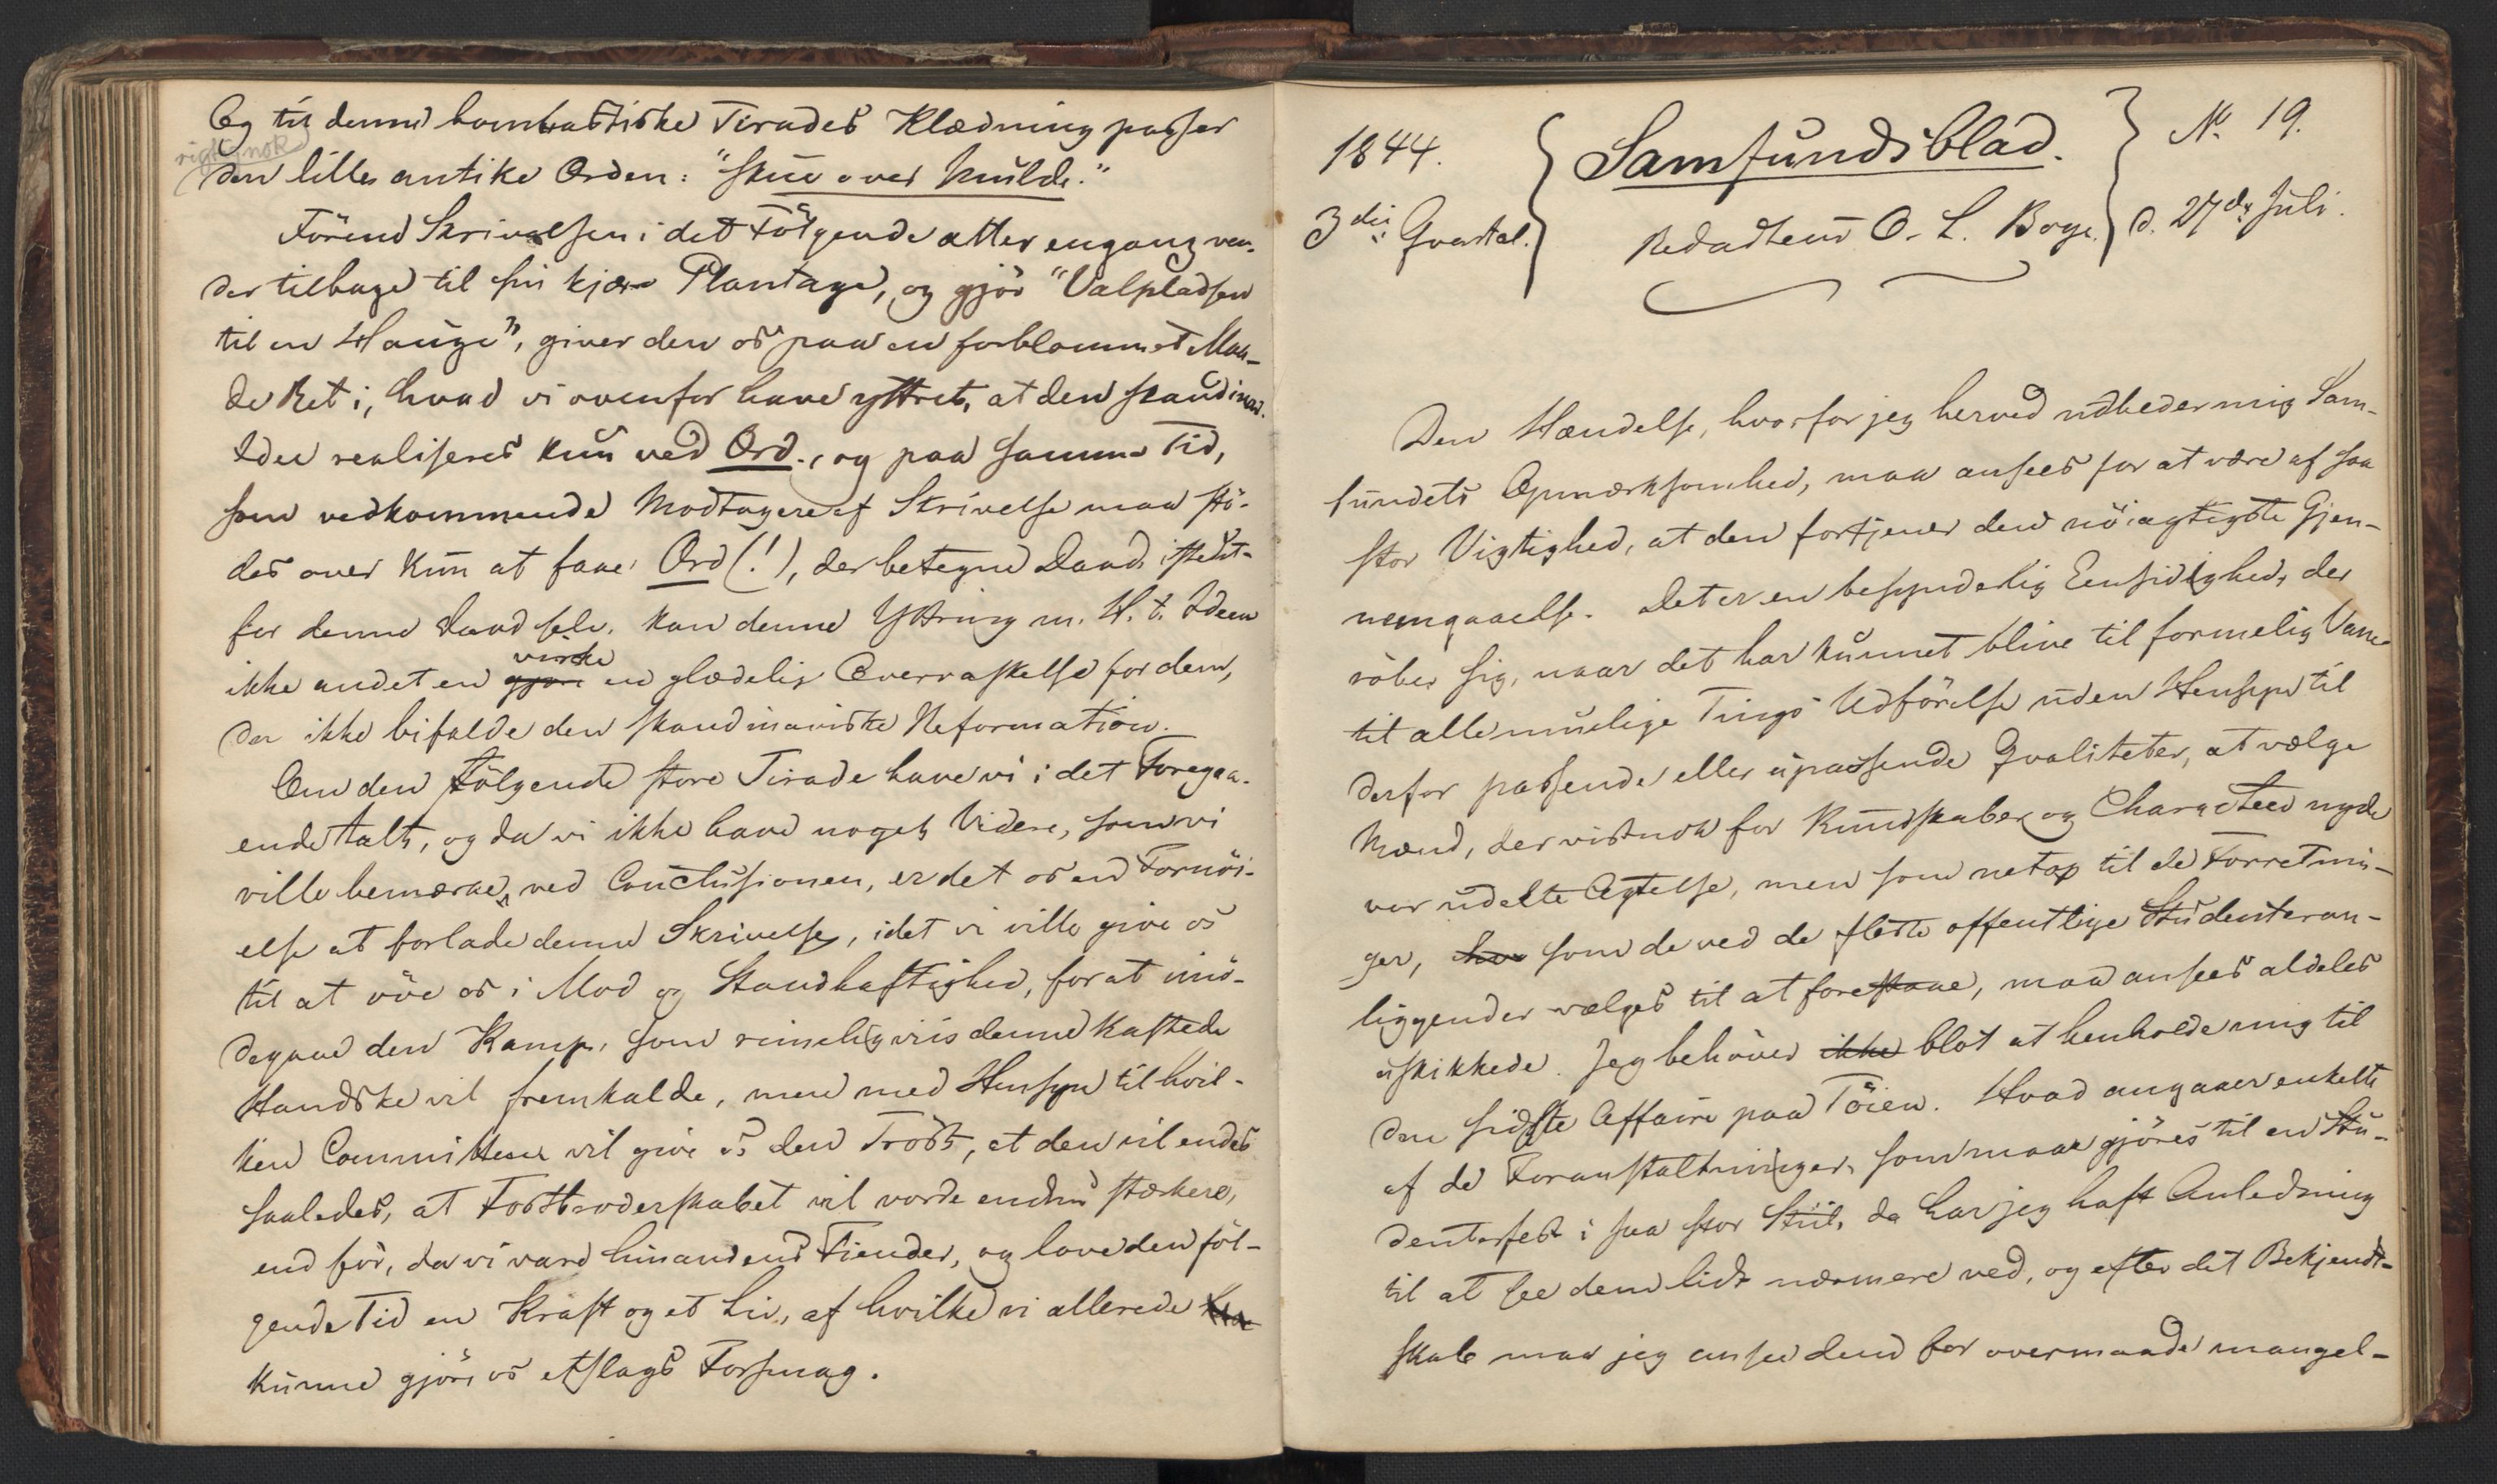 Og til denne bombastiske Tirades Klædning passer
rigtignok
den lille antike Orden: "skue over Mulde."
Förend Skrivelsen i det Fölgende atter engang ven-
der tilbage til sin kjære Plantage, og gjör "Valpladsen
til en Hauge", giver den os paa en forblommet Maa-
de Ret i, hvad vi ovenfor have yttret, at den skandinav.
Idee realiseres kun ved Ord., og paa samme Tid,
som vedkommende Modtagere af Skrivelse maa stö-
des over kun at faae Ord (!), der betegne Daad istedet-
for denne Daad selv, kan denne Yttring m. H. t. Ideen
virke
ikke andet en gjöre en glædelig Overraskelse for dem,
der ikke bifalde den skandinaviske Reformation.
Om den fölgende store Tirade have vi i det Foregaa-
ende talt, og da vi ikke have noget Videre, som vi
ville bemærke, ved Conclusionen, er det os en Fornöi-
else at forlade denne Skrivelse, idet vi ville give os
til at öve os i Mod og Standhaftighed, for at imö-
degaae den Kamp, som rimeligviis denne kastede
Handske vil fremkalde, men med Hensyn til hvil-
ken Committeen vil give os den Tröst, at den vil endes
saaledes, at Fostbroderskabet vil vorde endnu stærkere,
end för, da vi vare hinandens Fiender, og love den föl-
gende Tid en Kraft og et Liv, af hvilke vi allerede
kunne gjöre os etslags Forsmag.
1844.
3die Qvartal.
Samfundsblad.
Redacteur O. L. Boye.
No. 19.
d. 27de Juli.
Den Hændelse, hvorfor jeg herved udbeder mig Sam-
fundets Opmærksomhed, maa ansees for at være af saa
stor Vigtighed, at den fortjener den nöiagtigste Gjen-
nemgaaelse. Det er en besynderlig Eensidighed, der
röber sig, naar det har kunnet blive til formelig Vane
til alle muelige Tings Udförelse uden Hensyn til
derfor passende eller upassende Qvaliteter, at vælge
Mænd, der vistnok for Kundskaber og Characteer nyde
vor udelte Agtelse, men som netop til de Forretnin-
ger, som de ved de fleste offentlige Studenteran-
liggender vælges til at forestaae, maa ansees aldeles
uskikkede. Jeg behöver ikke blot at henholde mig til
den sidste Affaire paa Töien. Hvad angaaer enkelte
af de Foranstaltninger, som maae gjöres til en Stu-
denterfest i saa stor Stiil, da har jeg haft Anledning
til at see dem lidt nærmere ved, og efter det Bekjendt-
skab maa jeg ansee dem for overmaade mangel-